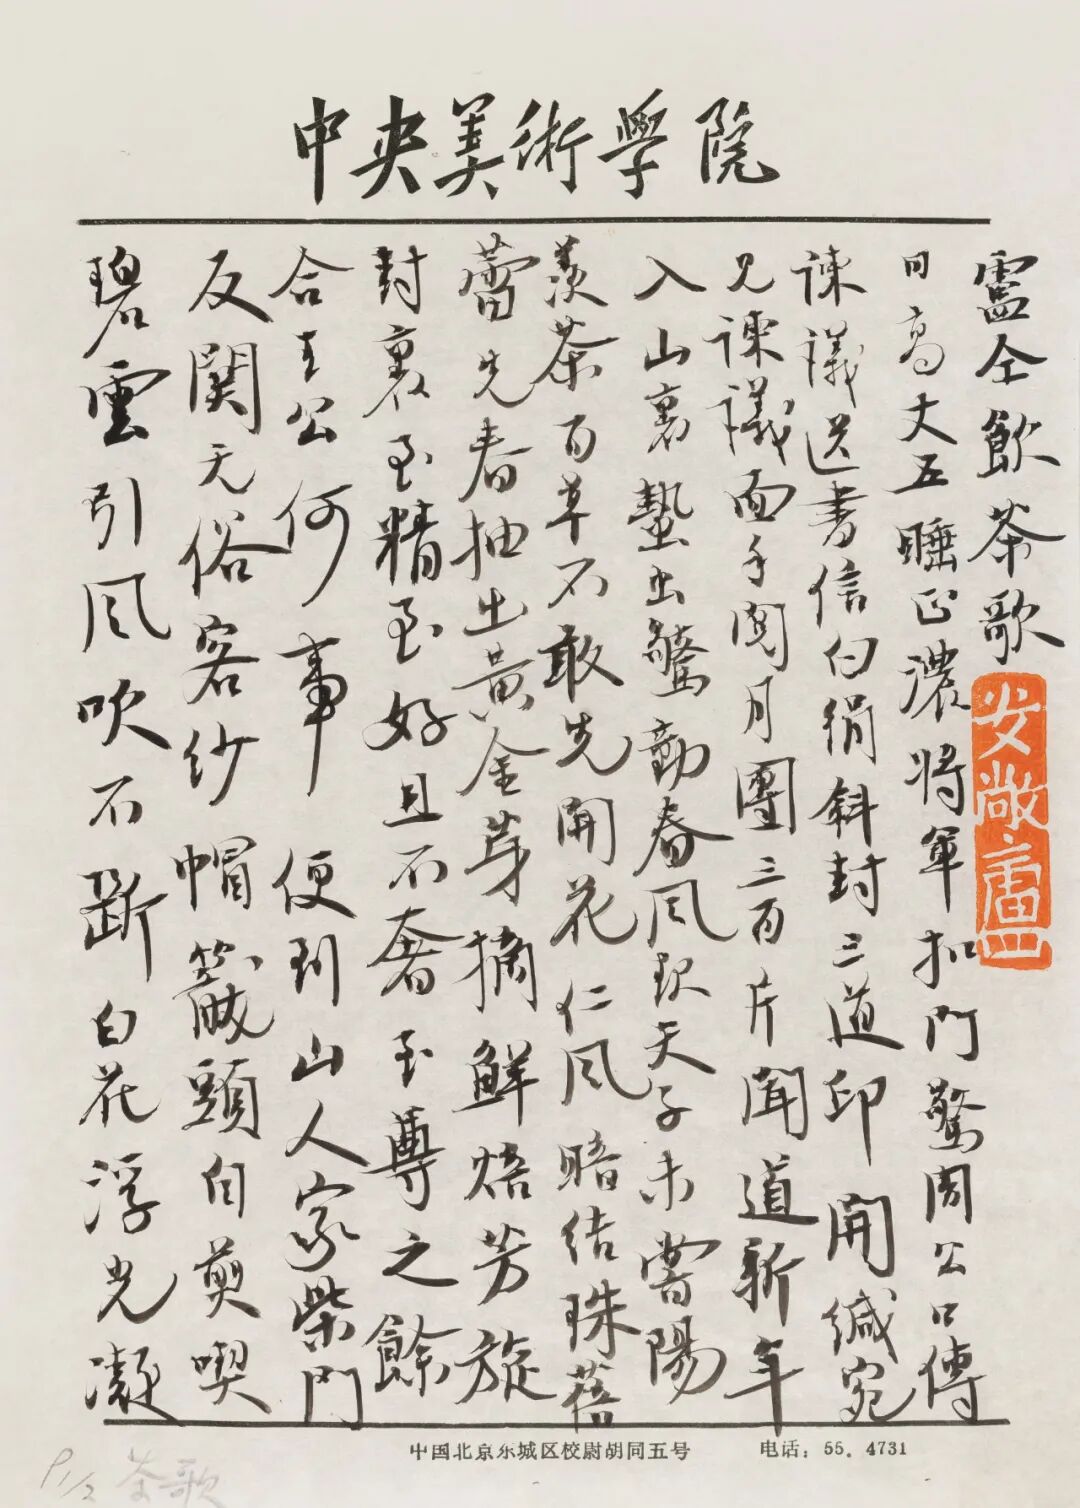 中央美術學院
盧仝飲茶歌
日高丈五睡正濃將軍扣門驚周公口傳
諫議送書信白絹斜封三道印開緘宛
見諫議面手閱月團三百片聞道新年
入山裏蟄虫驚動春風起天子未嘗陽
羨茶百草不敢先開花仁風暗結珠蓓
蕾先春抽出黃金芽摘鮮焙芳旋
封裹至精至好且不奢至尊之餘
合王公何事便到山人家柴門
反關无俗客纱帽籠頭自煎喫
碧雲引风吹不斷白花浮光凝
中国北京东城区校尉胡同五号 电话：55．4731
P1/2 茶歌